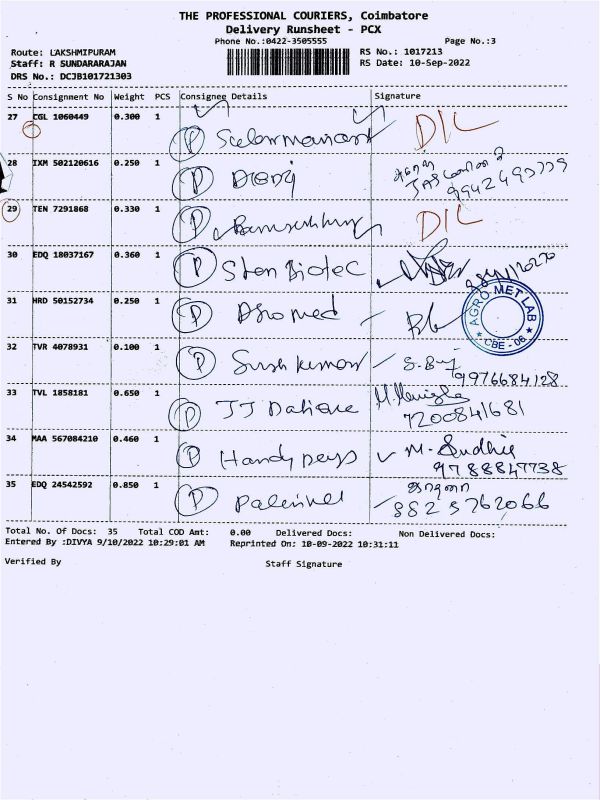 THE PROFESSIONAL COURIERS, Coimbatore
Delivery Runsheet - PCX
Phone No.:0422-3505555 Page No.:3
Route: LAKSHMIPURAM RS No.: 1017213
Staff: R SUNDARARAJAN RS Date: 10-Sep-2022
DRS No.: DCJB101721303
S No Consignment No Weight PCS Consignee Details Signature
27 CGL 1060449 0.300 1
P DIL
28 IXM 502120616 0.250 1
P
29 TEN 7291868 0.330 1
P DIL
30 EDQ 18037167 0.360 1
P Sten Biotec
31 HRD 50152734 0.250 1
P AGRO MET LAB CBE - 06
32 TVR 4078931 0.100 1
P 9976684128
33 TVL 1858181 0.650 1
P JJ 7200841681
34 MAA 567084210 0.460 1
P M. Sudhir
9788847738
35 EDQ 24542592 0.850 1
P Palanivel
8825762066
Total No. Of Docs: 35 Total COD Amt: 0.00 Delivered Docs: Non Delivered Docs:
Entered By :DIVYA 9/10/2022 10:29:01 AM Reprinted On: 10-09-2022 10:31:11
Verified By Staff Signature